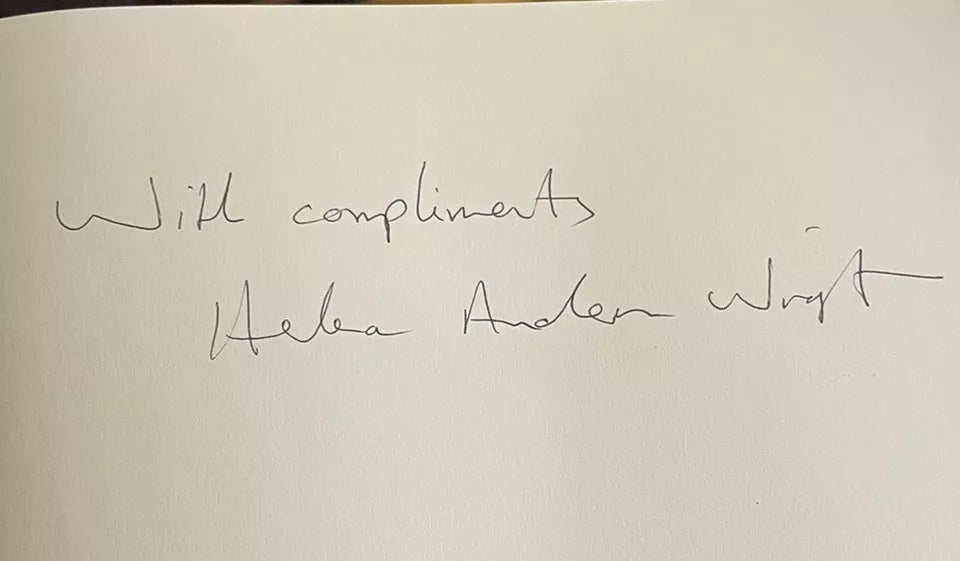 With compliments
Helena Anderson Wright